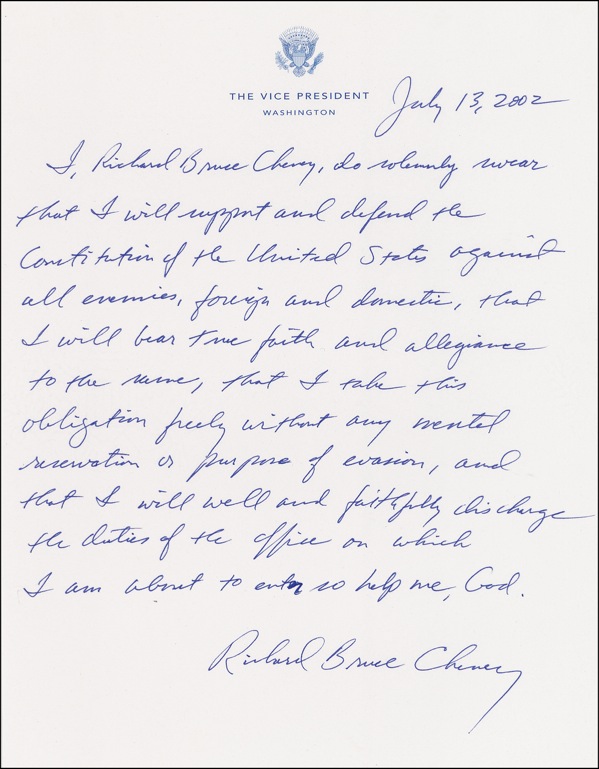 THE VICE PRESIDENT
WASHINGTON
July 13, 2002
I, Richard Bruce Cheney, do solemnly swear
that I will support and defend the
Constitution of the United States against
all enemies, foreign and domestic, that
I will bear true faith and allegiance
to the same, that I take this
obligation freely without any mental
reservation or purpose of evasion, and
that I will well and faithfully discharge
the duties of the office on which
I am about to enter so help me, God.
Richard Bruce Cheney